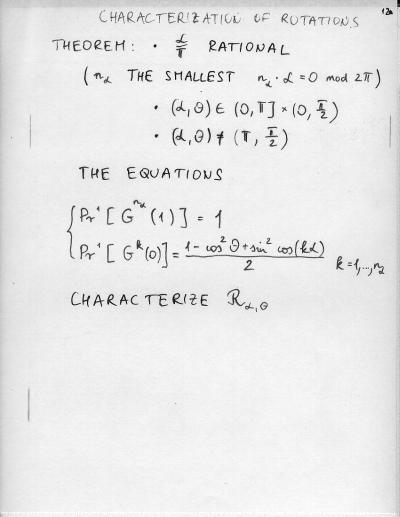 CHARACTERIZATION OF ROTATIONS
12a
THEOREM: • α/π RATIONAL
(n_α THE SMALLEST n_α · α = 0 mod 2π)
• (α, θ) ∈ (0, π] × (0, π/2)
• (α, θ) ≠ (π, π/2)
THE EQUATIONS
{ Pr¹[G^{n_α}(1)] = 1
Pr¹[G^k(0)] = (1 - cos²θ + sin² cos(kα)) / 2 k=1,...,n_α
CHARACTERIZE R_{α,θ}